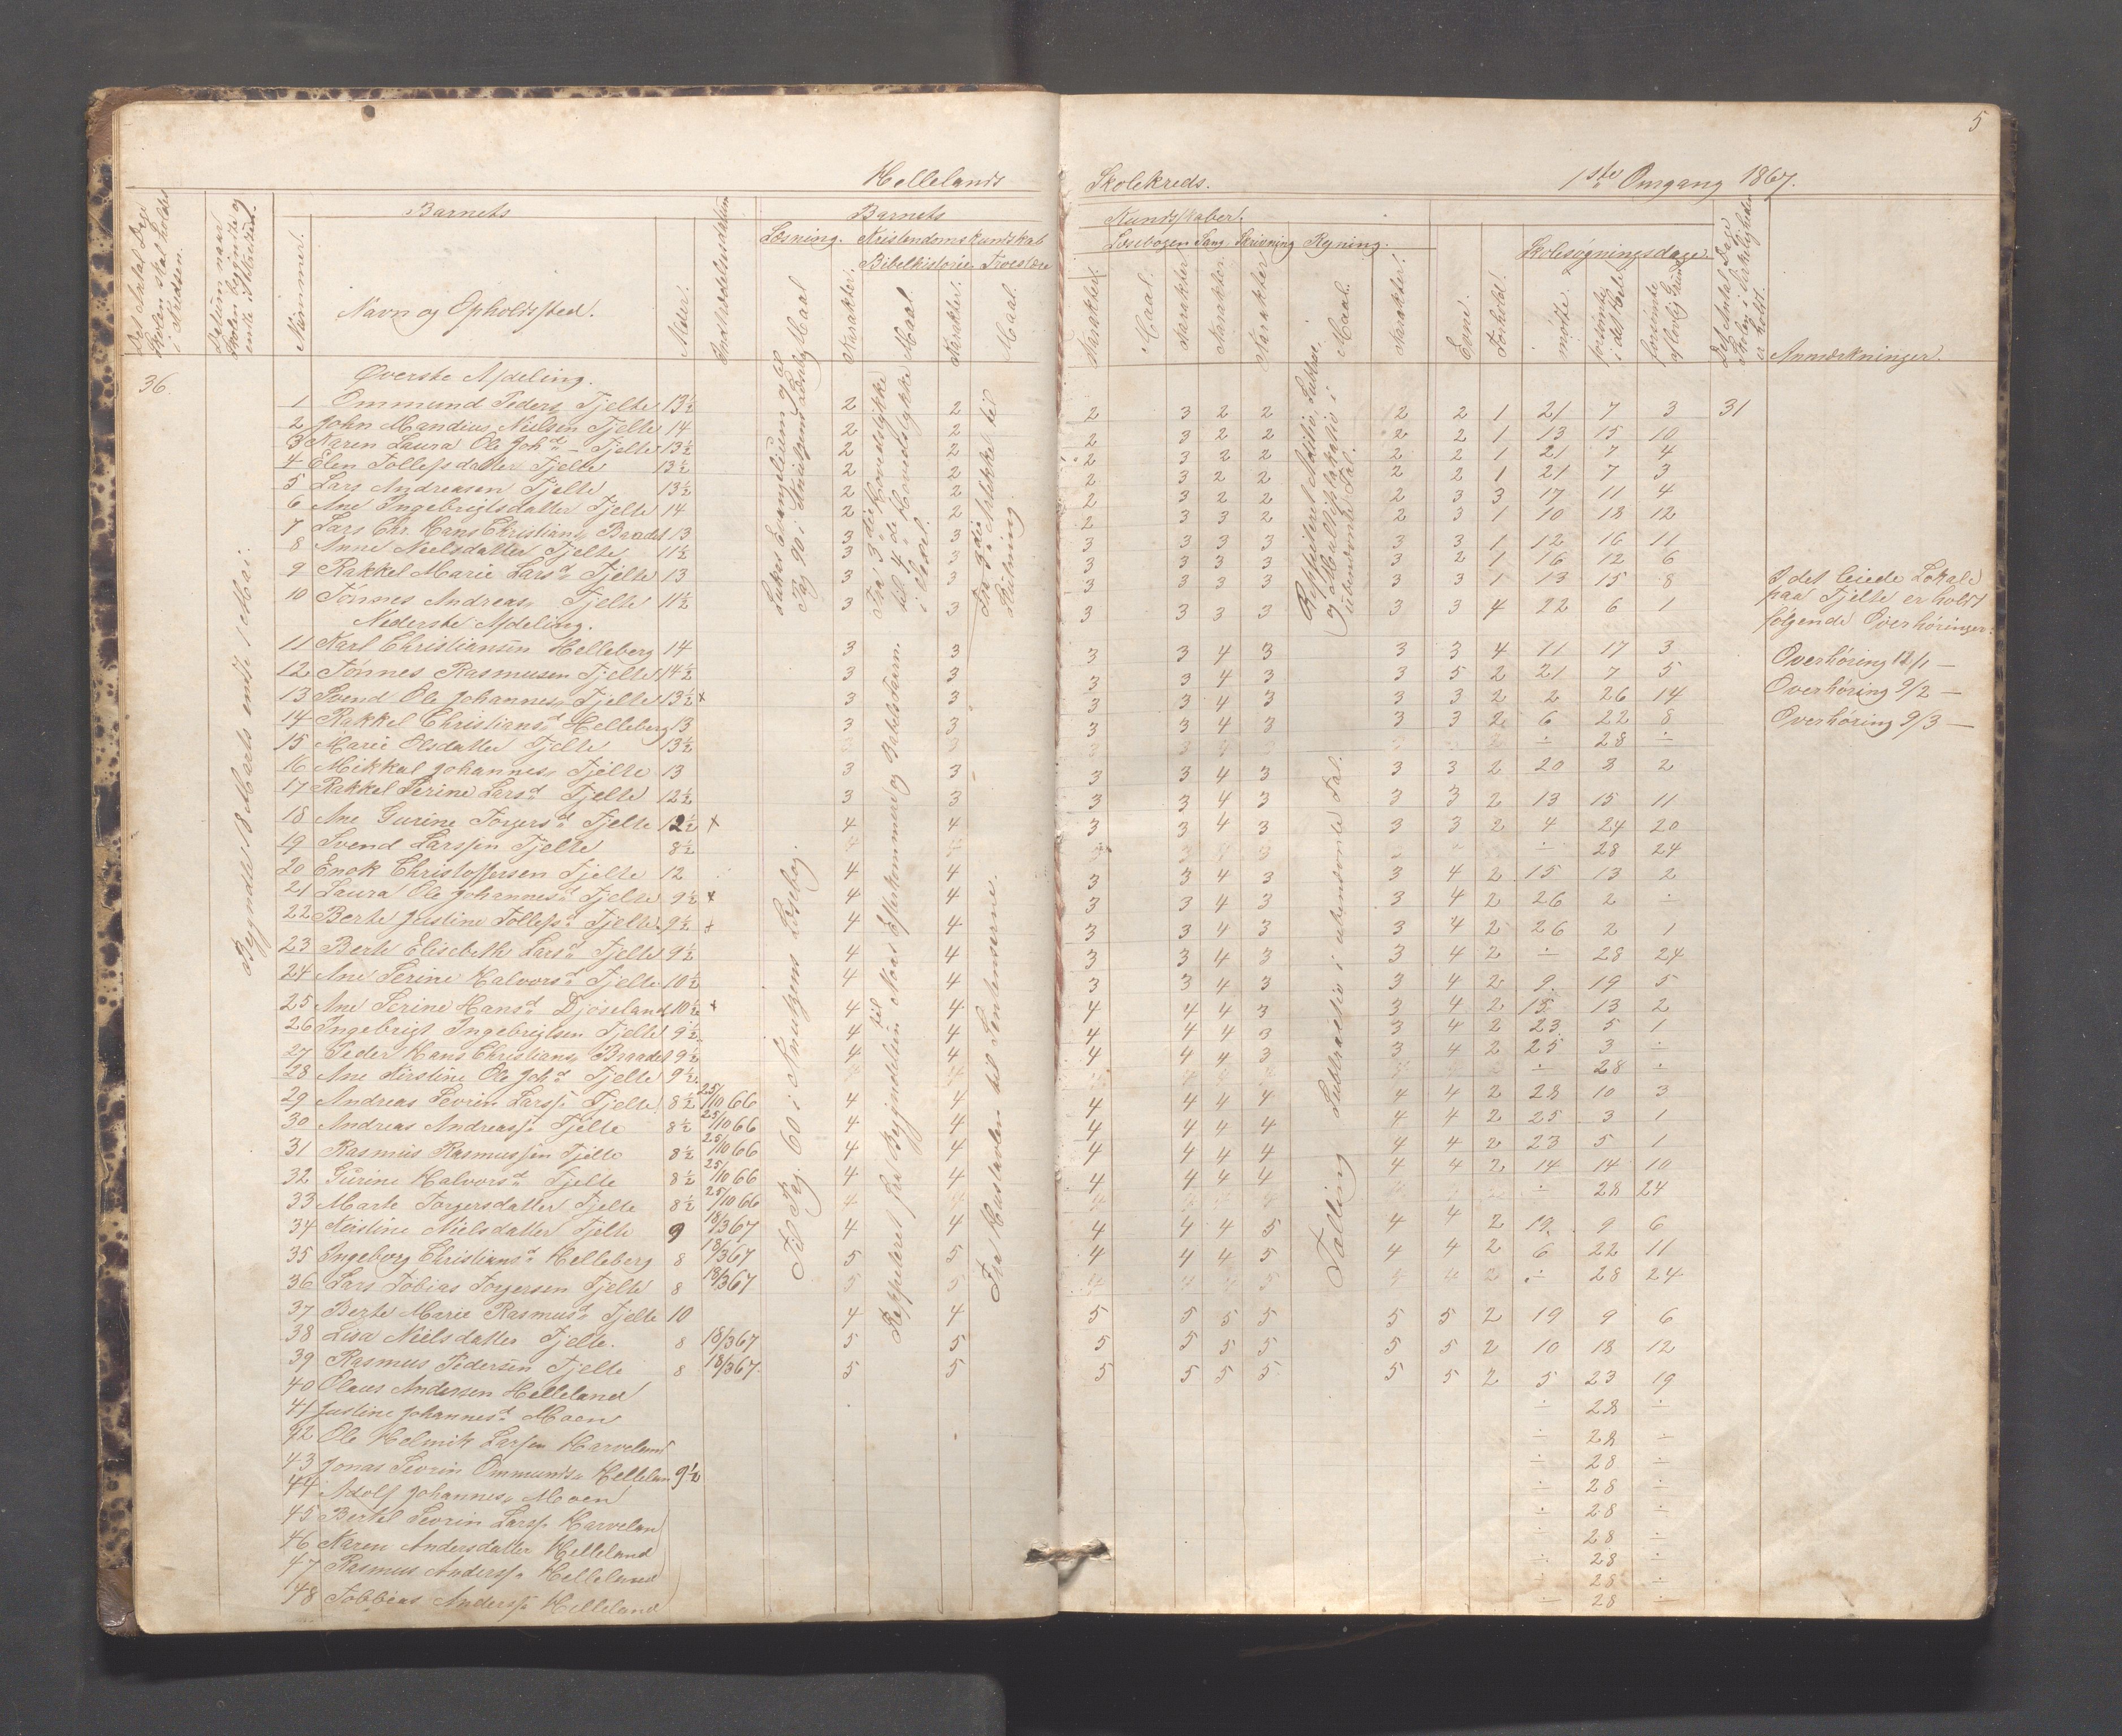 5
Hellelands Skolekreds. 1ste Omgang 1867.
Det Antal Dage Skolen skal holdes i Kredsen.
Datum naar Skolen begyndte og endte i Kredsen.
Nummer.
Barnets
Navn og Opholdssted.
Alder.
Indtrædelsesdatum
Barnets Kundskaber.
Læsning. Kristendomskundskab Læsebogen Sang Skrivning Regning.
Bibelhistorie Troeslære
Maal Karakter. Maal. Karakter. Maal. Karakter. Maal. Karakter Karakter. Karakter Maal. Karakter.
Evne. Forhold.
Skolesøgningsdage.
mødte. forsømte i det hele forsømte af lovlig Grund
Det Antal Dage Skolen i Virkeligheden er holdt.
Anmærkninger.
36.
Begyndte 18 Marts endte 1 Mai.
Øverste Afdeling.
1 Ommund Peders. Tjelte 13½ 2 2 2 3 2 2 2 2 1 21 7 3 31
2 John Mandius Nielsen Tjelte 14 2 2 2 3 2 2 2 2 1 13 15 10
3 Karen Laura Ole Joh.d. Tjelte 13½ 2 2 2 3 2 2 2 2 1 21 7 4
4 Elen Tollefsdatter Tjelte 13½ 2 2 2 3 2 2 2 2 1 21 7 3
5 Lars Andreasen Tjelte 13½ 2 2 2 3 2 2 2 3 3 17 11 4
6 Ane Ingebrigtsdatter Tjelte 14 2 2 2 3 3 2 2 3 1 10 18 12
7 Lars Chr. Hans Christians. Braadet 13 3 3 3 3 3 3 3 3 1 12 16 11
8 Anne Neelsdatter Tjelte 11½ 3 3 3 3 3 3 3 2 1 16 12 6
9 Rakkel Marie Larsd. Tjelte 13 3 3 3 3 3 3 3 3 1 13 15 8
10 Tønnes Andreas. Tjelte 11½ 3 3 3 3 3 3 3 3 4 22 6 1
Nederste Afdeling.
11 Karl Christiansen Helleberg 14 3 3 3 3 4 3 3 3 4 11 17 3
12 Tønnes Rasmusen Tjelte 14½ 3 3 3 3 4 3 3 5 2 21 7 5
13 Svend Ole Johannes. Tjelte 13½ x 3 3 3 3 4 3 3 3 2 2 26 14
14 Rakkel Christiansd. Helleberg 13 3 3 3 3 4 3 3 3 2 6 22 8
15 Marie Olsdatter Tjelte 13½ ÷ 28 ÷
16 Mikkal Johannes. Tjelte 13 3 3 3 3 4 3 3 3 2 20 3 2
17 Rakkel Serine Larsd. Tjelte 12½ 3 3 3 3 4 3 3 3 2 13 15 11
18 Ane Gurine Torgersd. Tjelte 12½ x 4 4 3 3 4 3 3 3 2 4 24 20
19 Svend Larssen Tjelte 8½ ÷ 28 24
20 Enok Christoffersen Tjelte 12 4 4 3 3 4 3 3 4 2 15 13 2
21 Laura Ole Johannesd. Tjelte 9½ x 4 4 3 3 4 3 3 4 2 26 2 ÷
22 Berte Justine Tollefsd. Tjelte 9½ x 4 4 3 3 4 3 3 4 2 26 2 1
23 Berte Elisebeth Larsd. Tjelte 9½ 4 4 3 3 4 3 3 4 2 ÷ 28 24
24 Ane Serine Halvorsd. Tjelte 10½ 4 4 3 3 4 3 3 4 2 9 19 5
25 Ane Serine Hansd. Djøseland 10½ x 4 4 4 4 4 3 3 4 2 15 13 2
26 Ingebrigt Ingebrigtsen Tjelte 9½ 4 4 4 4 4 3 3 4 2 23 5 1
27 Peder Hans Christians. Braadet 9½ 4 4 4 4 4 3 3 4 2 25 3 ÷
28 Ane Kirstine Ole Joh.d. Tjelte 9½ ÷ 28 ÷
29 Andreas Sevrin Larss. Tjelte 8½ 25/10 66 4 4 4 4 4 4 4 4 2 28 10 3
30 Andreas Andreass. Tjelte 8½ 25/10 66 4 4 4 4 4 4 4 4 2 25 3 1
31 Rasmus Rasmussen Tjelte 8½ 25/10 66 4 4 4 4 4 4 4 4 2 23 5 1
32 Gurine Halvorsd. Tjelte 8½ 25/10 66 4 4 4 4 4 4 4 4 2 14 14 10
33 Marte Torgersdatter Tjelte 8½ 25/10 66 4 4 ÷ 28 24
34 Kristine Nielsdatter Tjelte 9 18/3 67 4 4 4 4 4 5 4 4 2 19 9 6
35 Ingeborg Christiansd. Helleberg 8 18/3 67 5 5 4 4 4 5 4 4 2 6 22 11
36 Lars Tobias Torgersen Tjelte 8 18/3 67 5 5 ÷ 28 24
37 Berte Marie Rasmusd. Tjelte 10 4 4 5 5 5 5 5 5 2 19 9 6
38 Lisa Nielsdatter Tjelte. 8 18/3 67 5 5 5 5 5 5 5 5 2 10 18 12
39 Rasmus Pedersen Tjelte 8 18/3 67. 5 5 5 5 5 5 5 5 2 5 23 19
40 Olaus Andersen Helleland ÷ 28 ÷
41 Justine Johannesd. Moen ÷ 28 ÷
42 Ole Helmik Larsen Harveland ÷ 28 ÷
43 Jonas Sevrin Ommunds. Hellelan 9½ ÷ 28 ÷
44 Adolf Johannes. Moen ÷ 28 ÷
45 Bertel Sevrin Larss. Harvelan ÷ 28 ÷
46 Karen Andersdatter Helleland ÷ 28 ÷
47 Rasmus Anderss. Helleland ÷ 28 ÷
48 Tobbias Anderss. Helleland ÷ 28 ÷
Lukas Evangelium og til Pag 90 i
Fra 3die Hovedstykke til 4de Hovedstykke i
Fra 3die Artikkel til
Reppeteret Additio, Subtrac. og Multiplikatio i ubenævnte Tal.
Til Pag. 60 i Knutzens Læsebog.
Reppeteret fra Begyndelsen til Noas Efterkommere og Babelstaarn.
Fra Hustavlen til Sentenserne.
Tælling Subtractio i ubenævnte Tal.
I det leiede Lokale
paa Tjelte er holdt
følgende Overhøringer:
Overhøring 12/1 —
Overhøring 9/2 —
Overhøring 9/3 —